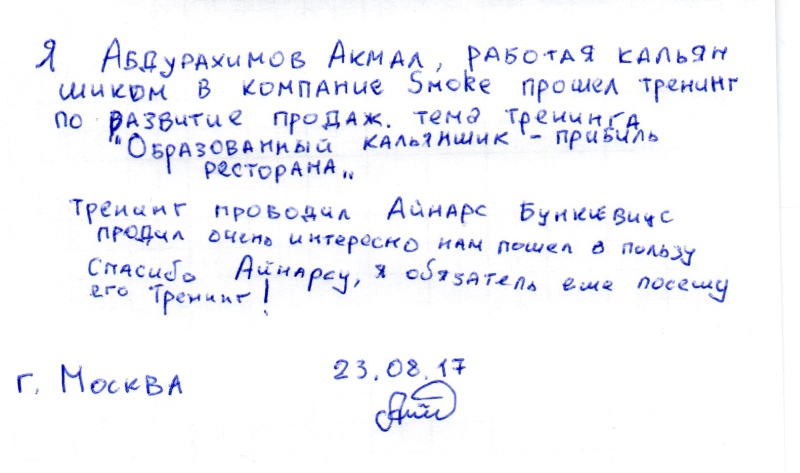 Я Абдурахимов Акмал, работая кальян
шиком в компание Smoke прошел тренинг
по развитие продаж. тема тренинга
"Образованный кальяншик - прибиль
ресторана„
Тренинг проводил Айнарс Бункиевицс
продил очень интересно нам пошел в пользу
Спасибо Айнарсу, я обязатель еше посешу
его тренинг!
г. Москва
23.08.17